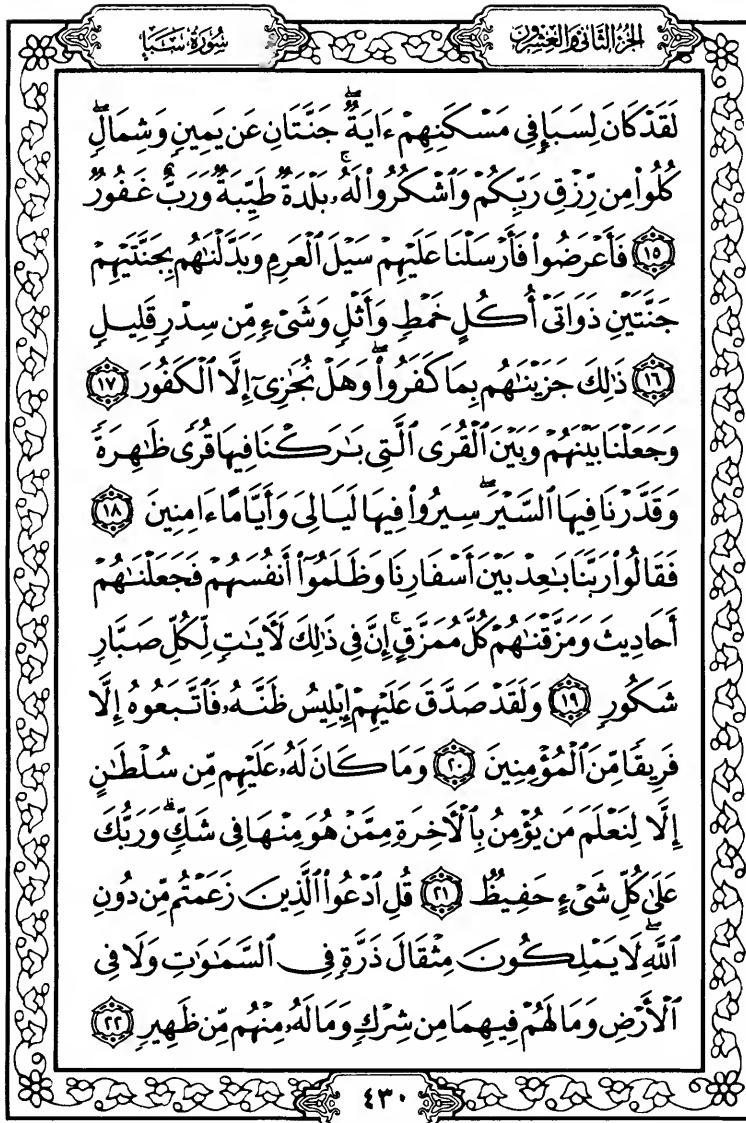 الجزء الثاني والعشرون
سُورَةُ سَبَإٍ
لَقَدْ كَانَ لِسَبَإٍ فِي مَسْكَنِهِمْ ءَايَةٌۖ جَنَّتَانِ عَن يَمِينٍ وَشِمَالٍۖ
كُلُوا۟ مِن رِّزْقِ رَبِّكُمْ وَٱشْكُرُوا۟ لَهُۥۚ بَلْدَةٌ طَيِّبَةٌ وَرَبٌّ غَفُورٌ
﴿١٥﴾ فَأَعْرَضُوا۟ فَأَرْسَلْنَا عَلَيْهِمْ سَيْلَ ٱلْعَرِمِ وَبَدَّلْنَٰهُم بِجَنَّتَيْهِمْ
جَنَّتَيْنِ ذَوَاتَىْ أُكُلٍ خَمْطٍ وَأَثْلٍ وَشَىْءٍ مِّن سِدْرٍ قَلِيلٍ
﴿١٦﴾ ذَٰلِكَ جَزَيْنَٰهُم بِمَا كَفَرُوا۟ۖ وَهَلْ نُجَٰزِىٓ إِلَّا ٱلْكَفُورَ ﴿١٧﴾
وَجَعَلْنَا بَيْنَهُمْ وَبَيْنَ ٱلْقُرَى ٱلَّتِى بَٰرَكْنَا فِيهَا قُرًى ظَٰهِرَةً
وَقَدَّرْنَا فِيهَا ٱلسَّيْرَۖ سِيرُوا۟ فِيهَا لَيَالِىَ وَأَيَّامًا ءَامِنِينَ ﴿١٨﴾
فَقَالُوا۟ رَبَّنَا بَٰعِدْ بَيْنَ أَسْفَارِنَا وَظَلَمُوٓا۟ أَنفُسَهُمْ فَجَعَلْنَٰهُمْ
أَحَادِيثَ وَمَزَّقْنَٰهُمْ كُلَّ مُمَزَّقٍۚ إِنَّ فِى ذَٰلِكَ لَءَايَٰتٍ لِّكُلِّ صَبَّارٍ
شَكُورٍ ﴿١٩﴾ وَلَقَدْ صَدَّقَ عَلَيْهِمْ إِبْلِيسُ ظَنَّهُۥ فَٱتَّبَعُوهُ إِلَّا
فَرِيقًا مِّنَ ٱلْمُؤْمِنِينَ ﴿٢٠﴾ وَمَا كَانَ لَهُۥ عَلَيْهِم مِّن سُلْطَٰنٍ
إِلَّا لِنَعْلَمَ مَن يُؤْمِنُ بِٱلْءَاخِرَةِ مِمَّنْ هُوَ مِنْهَا فِى شَكٍّۗ وَرَبُّكَ
عَلَىٰ كُلِّ شَىْءٍ حَفِيظٌ ﴿٢١﴾ قُلِ ٱدْعُوا۟ ٱلَّذِينَ زَعَمْتُم مِّن دُونِ
ٱللَّهِۖ لَا يَمْلِكُونَ مِثْقَالَ ذَرَّةٍ فِى ٱلسَّمَٰوَٰتِ وَلَا فِى
ٱلْأَرْضِ وَمَا لَهُمْ فِيهِمَا مِن شِرْكٍ وَمَا لَهُۥ مِنْهُم مِّن ظَهِيرٍ ﴿٢٢﴾
٤٣٠